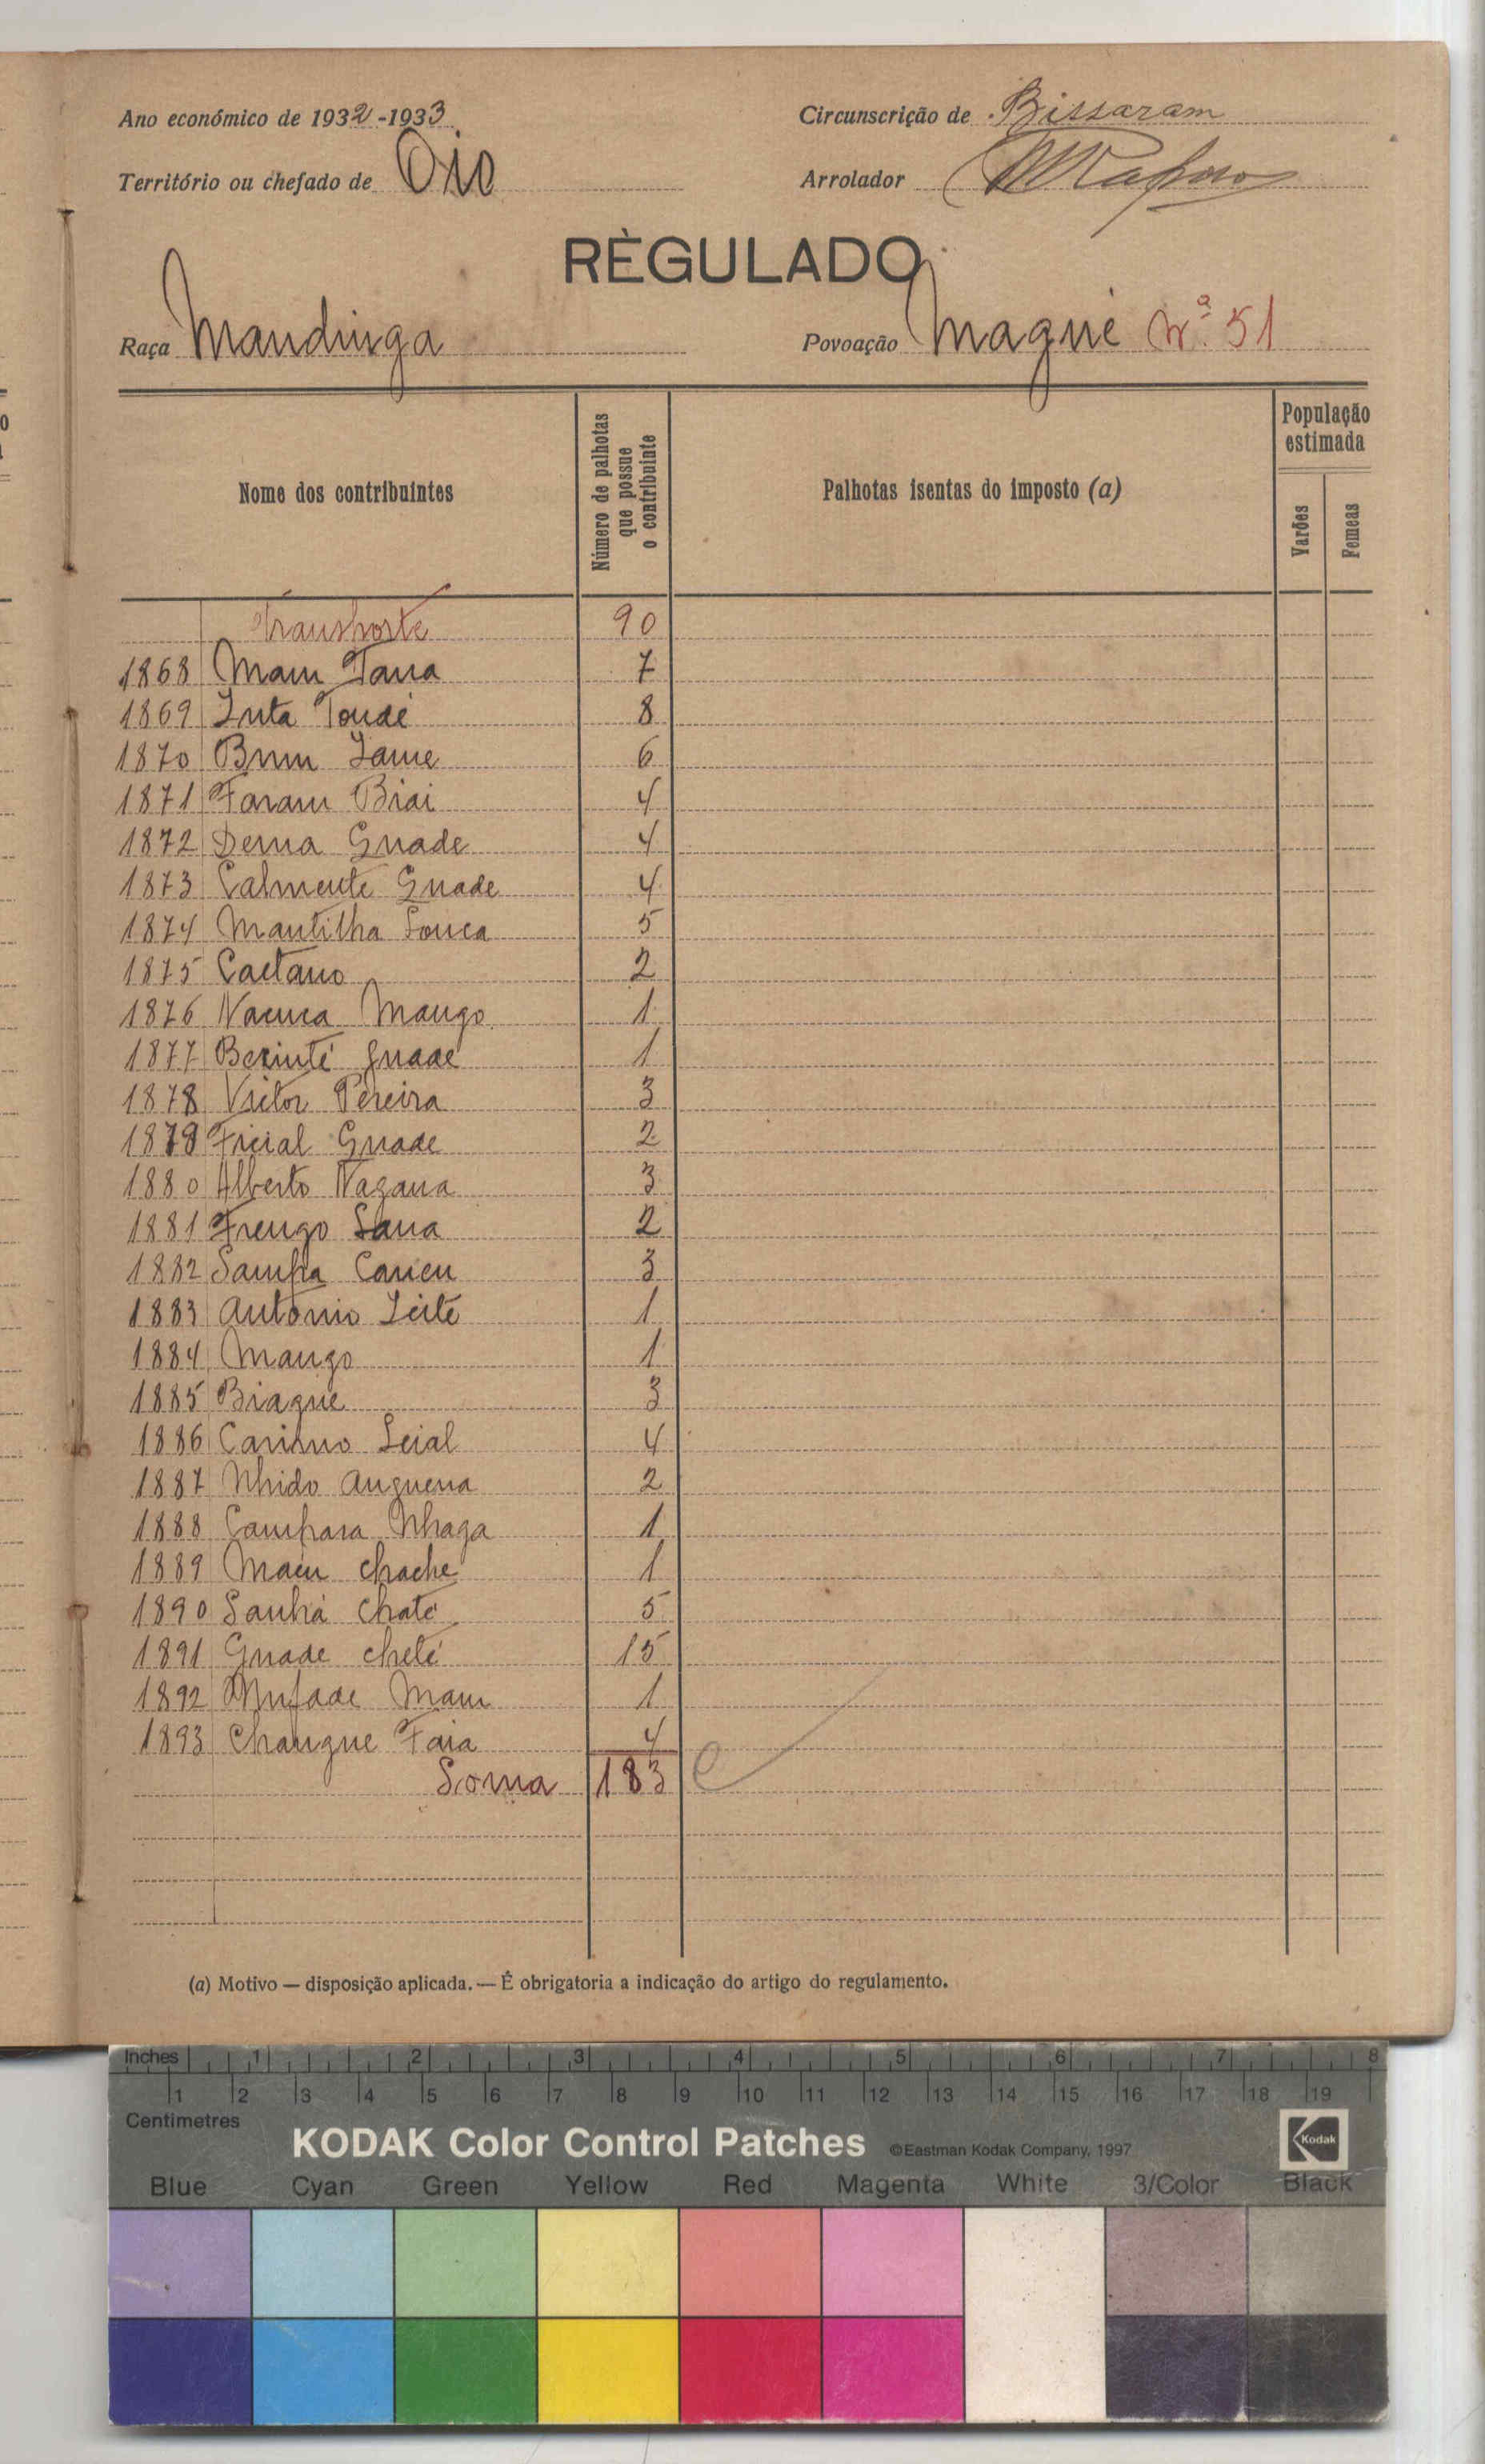 Ano económico de 1932-1933
Circunscrição de Bissaram
Território ou chefado de Oio
Arrolador
RÈGULADO
Raça Mandinga
Povoação Maque Nº 51
Nome dos contribuintes
Número de palhotas que possue o contribuinte
Palhotas isentas do imposto (a)
População estimada
Varões
Femeas
Transporte 90
1868 Mam Tana 7
1869 Inta Toudé 8
1870 Brum Jame 6
1871 Faram Biai 4
1872 Dema Guade 4
1873 Calmente Guade 4
1874 Mantilha Sonca 5
1875 Caetano 2
1876 Nacuca Mango 1
1877 Becinté Guade 1
1878 Victor Pereira 3
1879 Ficial Guade 2
1880 Alberto Nagana 3
1881 Frengo Sana 2
1882 Sampa Canen 3
1883 Antonio Leite 1
1884 Mango 1
1885 Biague 3
1886 Carimo Leial 4
1887 Nhido Anguena 2
1888 Campara Nhaga 1
1889 Main chache 1
1890 Sanhá chaté 5
1891 Guade cheté 15
1892 Mufade Mam 1
1893 Changue Faia 4
Soma 183
(a) Motivo — disposição aplicada. — É obrigatoria a indicação do artigo do regulamento.
Inches 1 2 3 4 5 6 7 8
1 2 3 4 5 6 7 8 9 10 11 12 13 14 15 16 17 18 19
Centimetres
KODAK Color Control Patches ©Eastman Kodak Company, 1997 Kodak
Blue Cyan Green Yellow Red Magenta White 3/Color Black